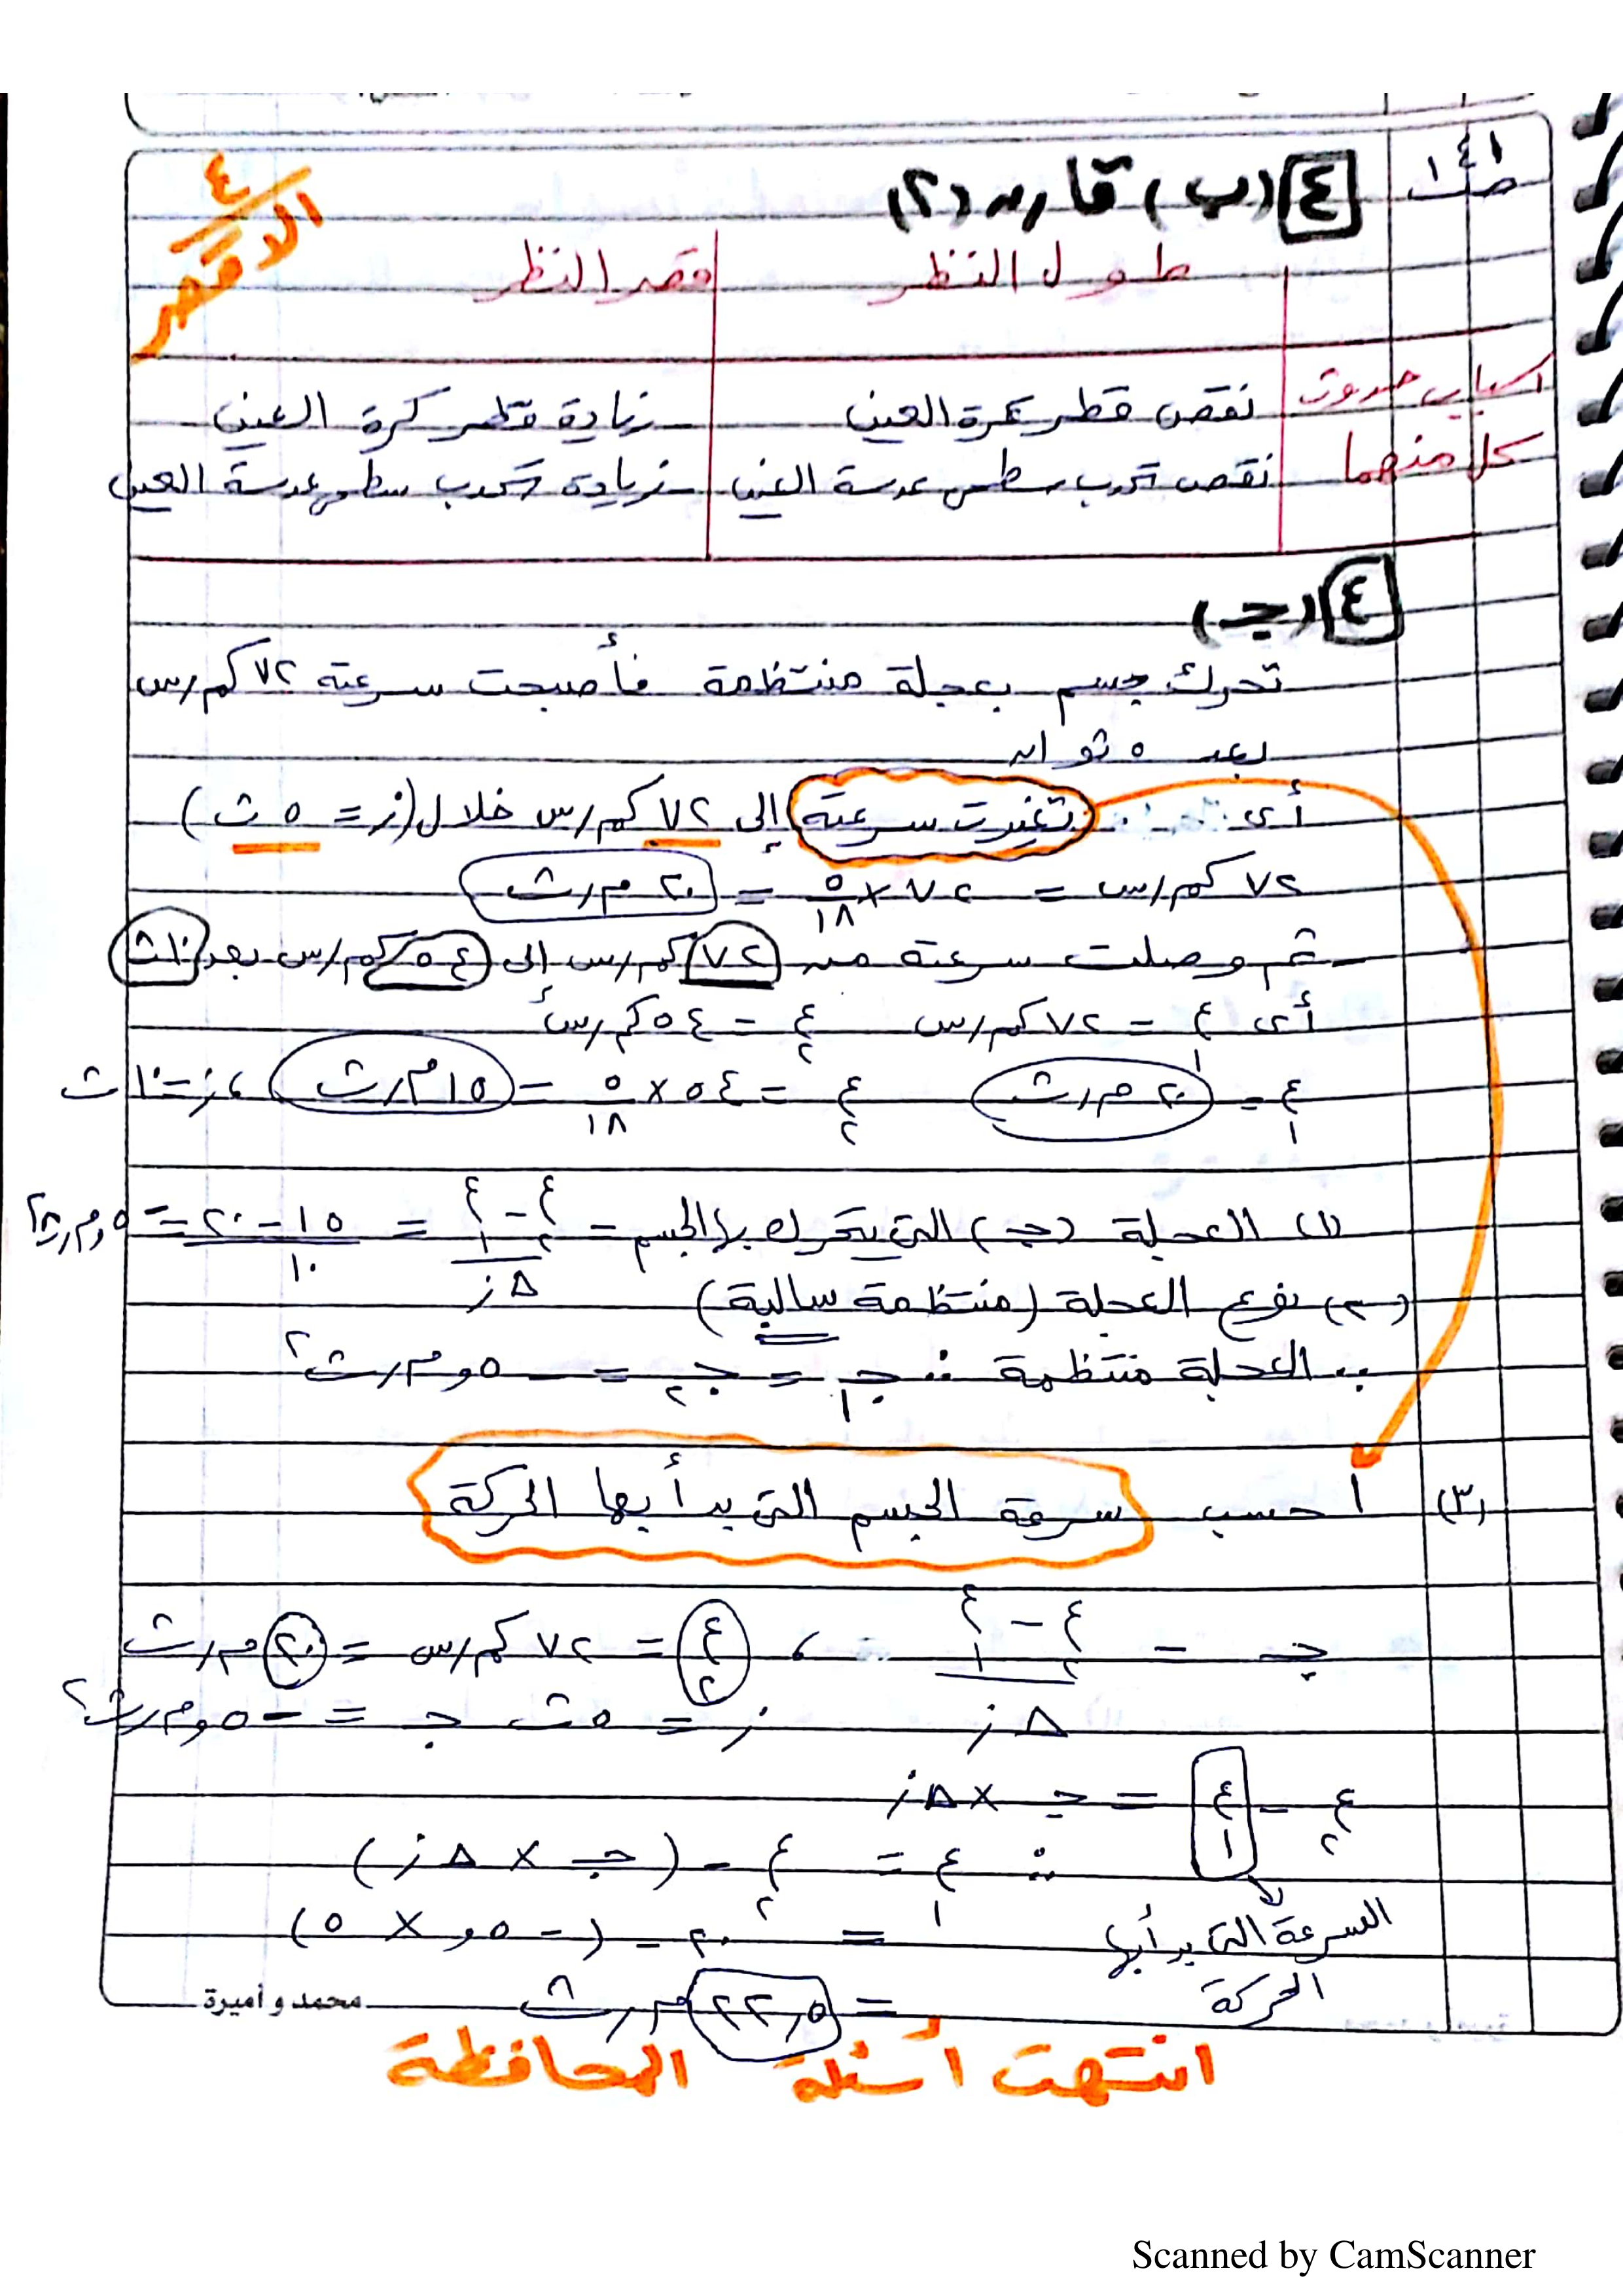 ص ١٤١
٤
الاقصر
٤ (ب) قارن (٢)
طول النظر قصر النظر
اسباب حدوث كل منهما
نقص قطر كرة العين زيادة قطر كرة العين
نقص تحدب سطحى عدسة العين زيادة تحدب سطحى عدسة العين
٤ (جـ)
تحرك جسم بعجلة منتظمة فأصبحت سرعته ٧٢ كم/س
بعد ٥ ثوان
أى تغيرت سرعته إلى ٧٢ كم/س خلال (ز = ٥ ث)
٧٢ كم/س = ٧٢ × ٥/١٨ = ٢٠ م/ث
ثم وصلت سرعته من ٧٢ كم/س إلى ٥٤ كم/س بعد ١٠ث
أى ع١ = ٧٢ كم/س ع٢ = ٥٤ كم/س
ع١ = ٢٠ م/ث ع٢ = ٥٤ × ٥/١٨ = ١٥ م/ث ، ز = ١٠ ث
(١) العجلة (جـ) التى يتحرك بها الجسم = ع٢ - ع١ / Δز = ١٥ - ٢٠ / ١٠ = -٥و م/ث٢
(٢) نوع العجلة (منتظمة سالبة)
∵ العجلة منتظمة ∴ جـ١ = جـ٢ = -٥و م/ث٢
(٣) احسب سرعة الجسم التى بدأ بها الحركة
جـ = ع٢ - ع١ / Δز ، ع٢ = ٧٢ كم/س = ٢٠ م/ث
ز = ٥ث جـ = -٥و م/ث٢
ع٢ - ع١ = جـ × Δز
∴ ع١ = ع٢ - (جـ × Δز)
السرعة التى بدأ بها الحركة
= ٢٠ - (-٥و × ٥)
= ٢٢,٥ م/ث
محمد و أميرة
انتهت أسئلة المحافظة
Scanned by CamScanner